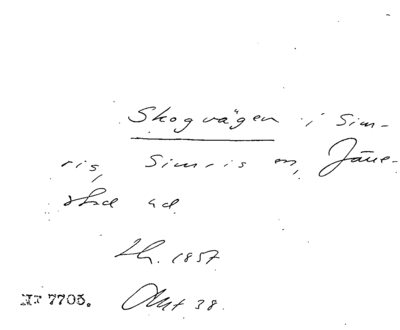 Skogvägen i Sim-
ris, Simris sn, Järre-
stad hd
Lh. 1857
NF 7705. Akt 38.